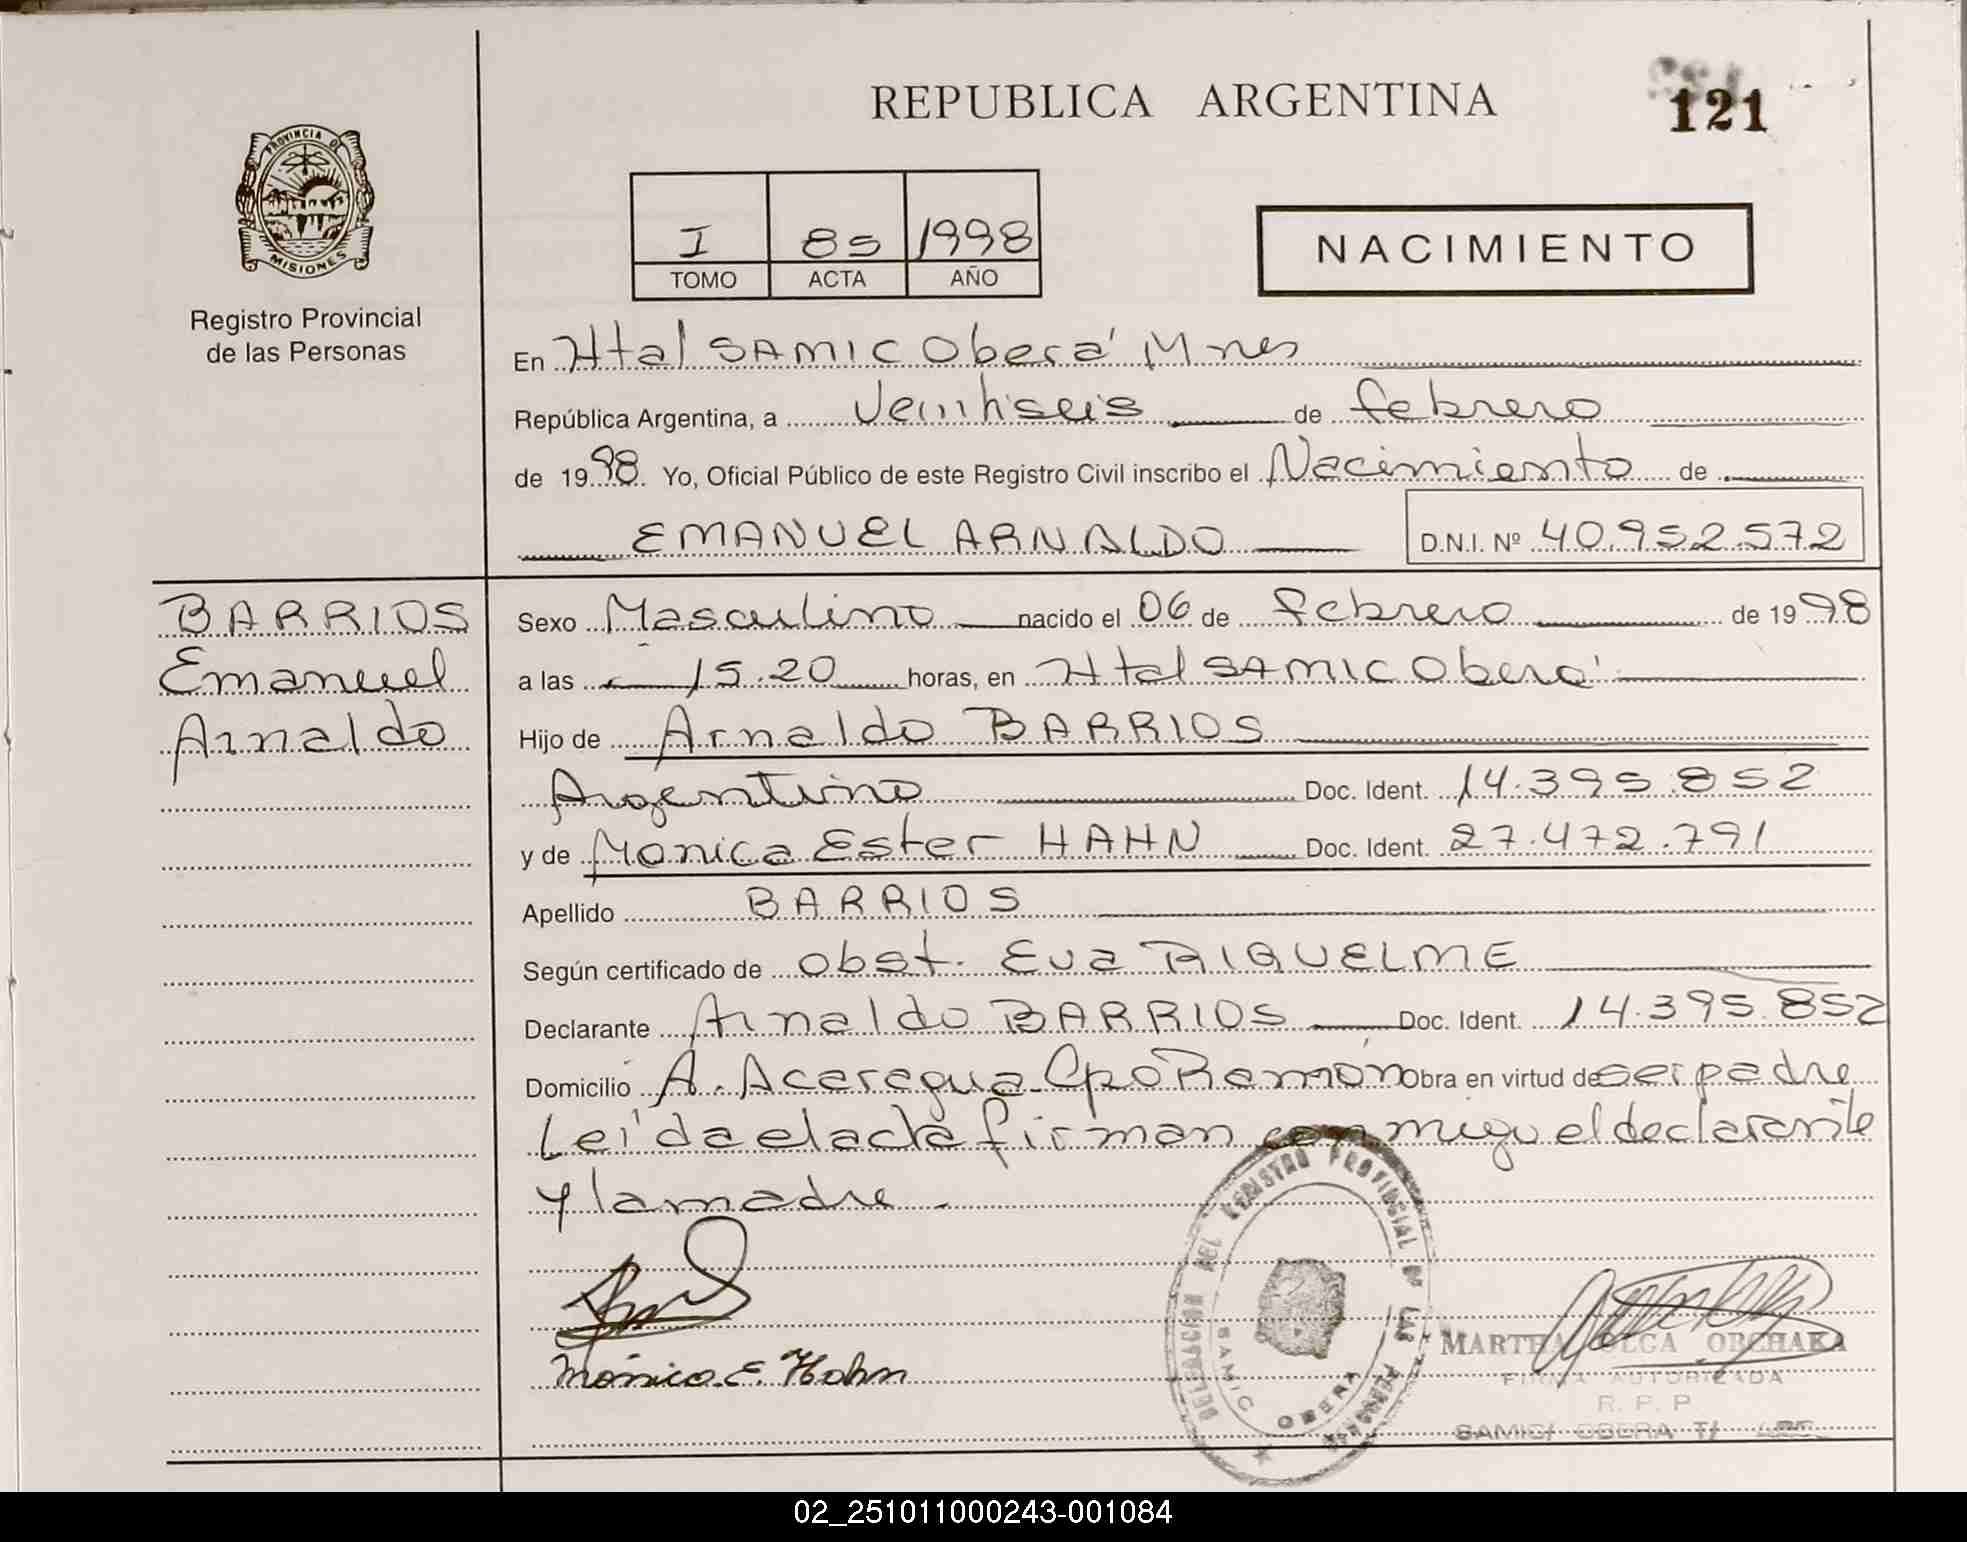 REPUBLICA ARGENTINA
121
PROVINCIA DE
MISIONES
Registro Provincial
de las Personas
I 85 1998
TOMO ACTA AÑO
NACIMIENTO
En Htal SAMIC Oberá Mnes
República Argentina, a veintiseis de febrero
de 1998 Yo, Oficial Público de este Registro Civil inscribo el Nacimiento de
EMANUEL ARNALDO D.N.I. Nº 40.952.572
BARRIOS
Emanuel
Arnaldo
Sexo Masculino nacido el 06 de febrero de 1998
a las 15.20 horas, en Htal SAMIC Oberá
Hijo de Arnaldo BARRIOS
Argentino Doc. Ident. 14.395.852
y de Monica Ester HAHN Doc. Ident. 27.472.791
Apellido BARRIOS
Según certificado de obst. Eva RIQUELME
Declarante Arnaldo BARRIOS Doc. Ident. 14.395.852
Domicilio A. Acaragua Cpo Ramón Obra en virtud de ser padre
Leída el acta firman conmigo el declarante
y la madre.
Mónica E. Hahn
DELEGACION DEL REGISTRO PROVINCIAL DE LAS PERSONAS
SAMIC OBERA
MARTHA OLGA OBCHAKA
FIRMA AUTORIZADA
R. P. P
SAMIC/ OBERA T/
02_251011000243-001084